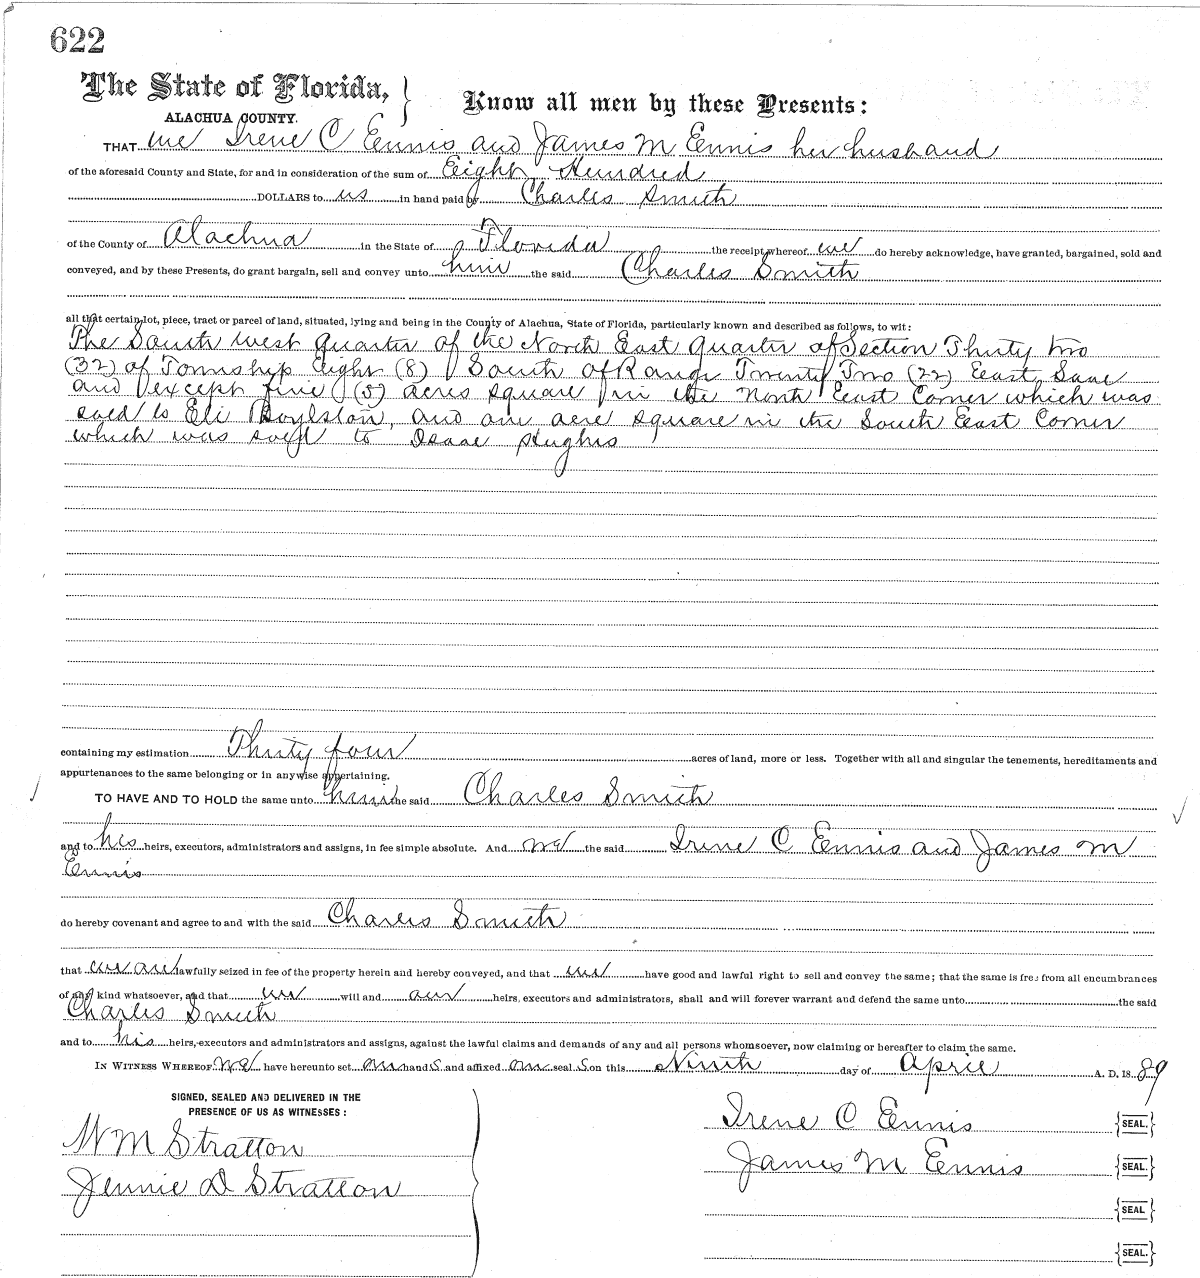 622
The State of Florida, } Know all men by these Presents:
ALACHUA COUNTY.
THAT we Irene C Ennis and James M Ennis her husband
of the aforesaid County and State, for and in consideration of the sum of Eight Hundred
DOLLARS to us in hand paid by Charles Smith
of the County of Alachua in the State of Florida the receipt whereof we do hereby acknowledge, have granted, bargained, sold and
conveyed, and by these Presents, do grant bargain, sell and convey unto him the said Charles Smith
all that certain lot, piece, tract or parcel of land, situated, lying and being in the County of Alachua, State of Florida, particularly known and described as follows, to wit:
The South west quarter of the North East quarter of Section Thirty two
(32) of Township Eight (8) South of Range Twenty Two (22) East, Save
and except five (5) acres square in the North East Corner which was
sold to Eli Boylston, and one acre square in the South East Corner
which was sold to Isaac Hughis
containing my estimation Thirty four acres of land, more or less. Together with all and singular the tenements, hereditaments and
appurtenances to the same belonging or in anywise appertaining.
TO HAVE AND TO HOLD the same unto him the said Charles Smith
and to his heirs, executors, administrators and assigns, in fee simple absolute. And we the said Irene C Ennis and James M
Ennis
do hereby covenant and agree to and with the said Charles Smith
that we are lawfully seized in fee of the property herein and hereby conveyed, and that we have good and lawful right to sell and convey the same; that the same is free from all encumbrances
of any kind whatsoever, and that we will and our heirs, executors and administrators, shall and will forever warrant and defend the same unto the said
Charles Smith
and to his heirs, executors and administrators and assigns, against the lawful claims and demands of any and all persons whomsoever, now claiming or hereafter to claim the same.
IN WITNESS WHEREOF we have hereunto set our hand s and affixed our seal s on this Ninth day of April A. D. 18 89
SIGNED, SEALED AND DELIVERED IN THE
PRESENCE OF US AS WITNESSES:
W M Stratton
Jennie D Stratton
Irene C Ennis {SEAL.}
James M Ennis {SEAL.}
{SEAL}
{SEAL.}